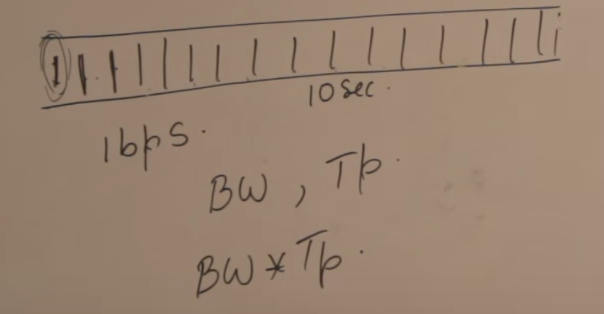 10 sec.
1bps.
BW, Tp.
BW * Tp.